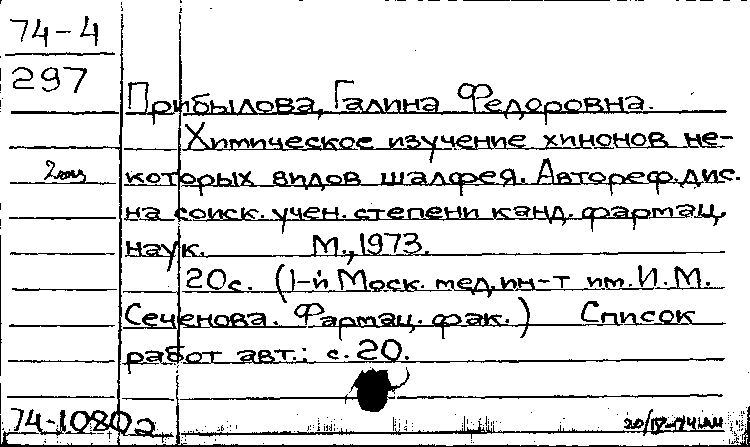 74-4
297
Прибылова, Галина Федоровна.
Химическое изучение хинонов не-
2экз
которых видов шалфея. Автореф. дис.
на соиск. учен. степени канд. фармац.
наук. М., 1973.
20с. (1-й Моск. мед. ин-т им. И. М.
Сеченова. Фармац. фак.) Список
работ авт.: с. 20.
74-1080а